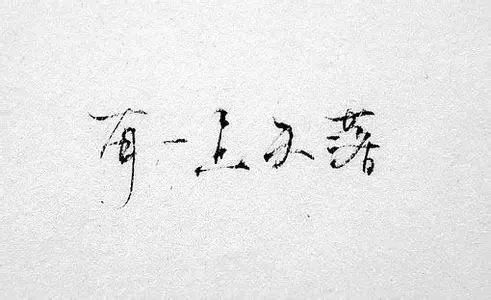 有一上不落